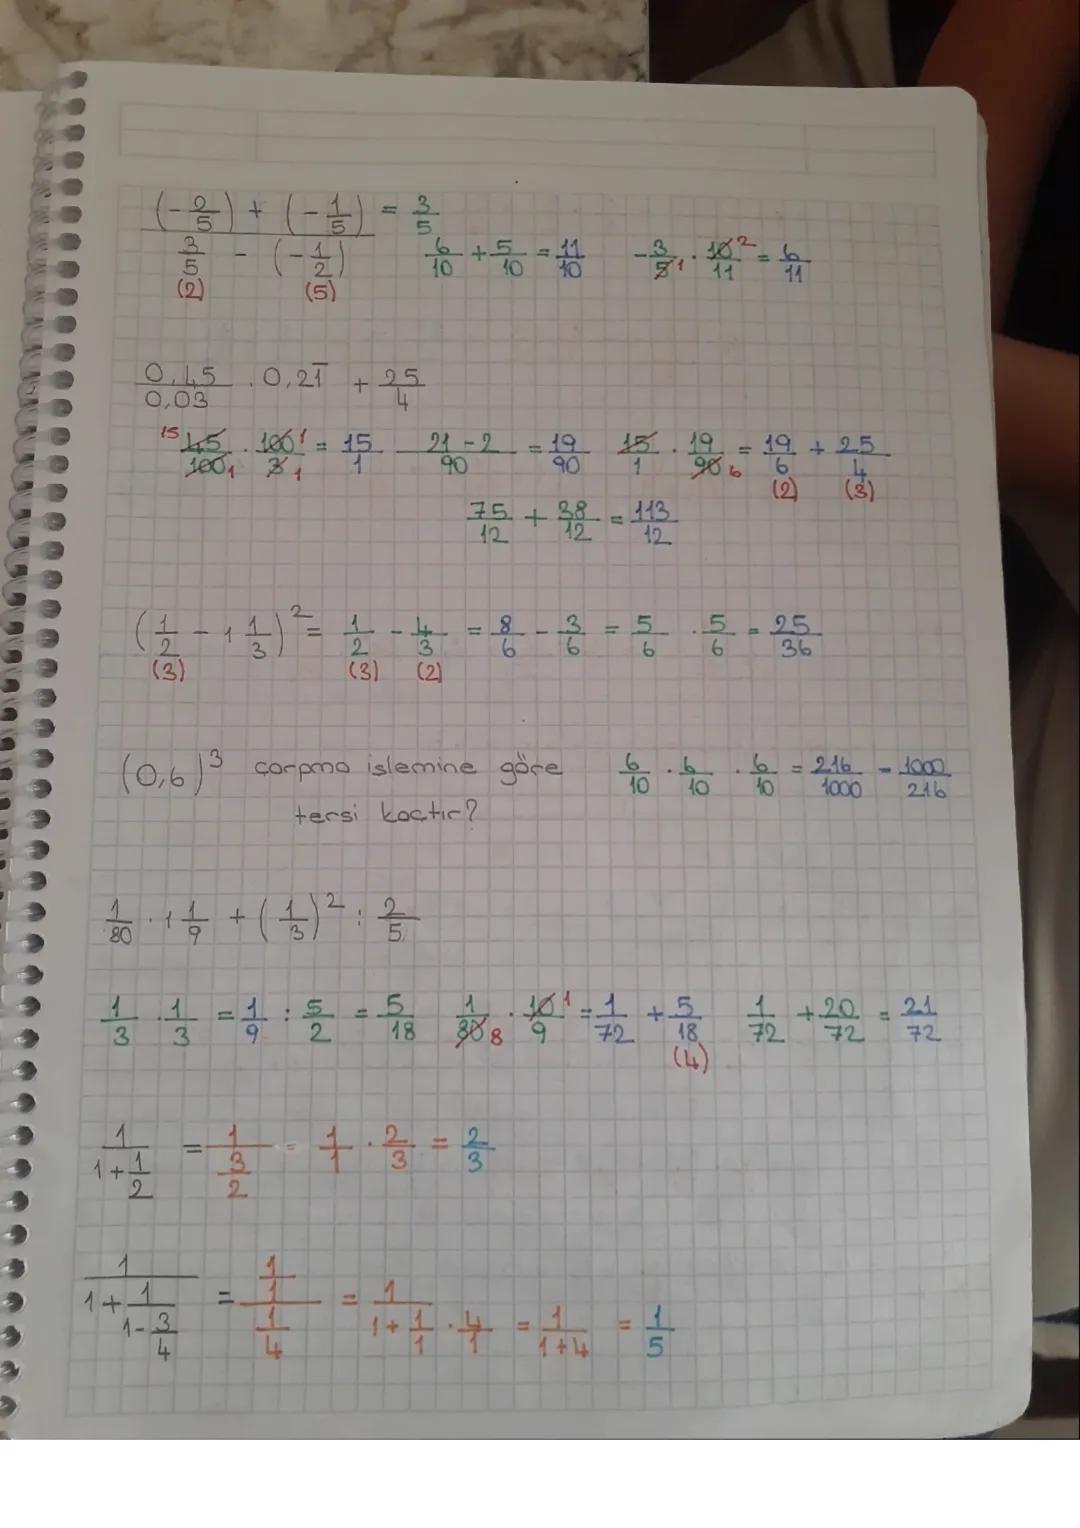 (-2/5) + (-1/5) = 3/5
3/5 - (-1/2) 6/10 + 5/10 = 11/10 -3/5 1 · 10 2/11 = 6/11
(2) (5)
0,45/0,03 · 0,21̅ + 25/4
15 45/100 1 · 100 1/3 1 = 15/1 21-2/90 = 19/90 15/1 · 19/90 6 = 19/6 + 25/4
(2) (3)
75/12 + 38/12 = 113/12
(1/2 - 1 1/3)² = 1/2 - 4/3 = 8/6 - 3/6 = 5/6 · 5/6 = 25/36
(3) (3) (2)
(0,6)³ çarpma işlemine göre 6/10 · 6/10 · 6/10 = 216/1000 - 1000/216
tersi kaçtır?
1/80 · 1 1/9 + (1/3)² : 2/5
1/3 · 1/3 = 1/9 : 5/2 = 5/18 1/80 8 · 10 1/9 = 1/72 + 5/18 1/72 + 20/72 = 21/72
(4)
1/(1+1/2) = 1/(3/2) = 1/1 · 2/3 = 2/3
1/(1+1/(1-3/4)) = (1/1)/(1/4) = 1/(1+1/1 · 4/1) = 1/(1+4) = 1/5